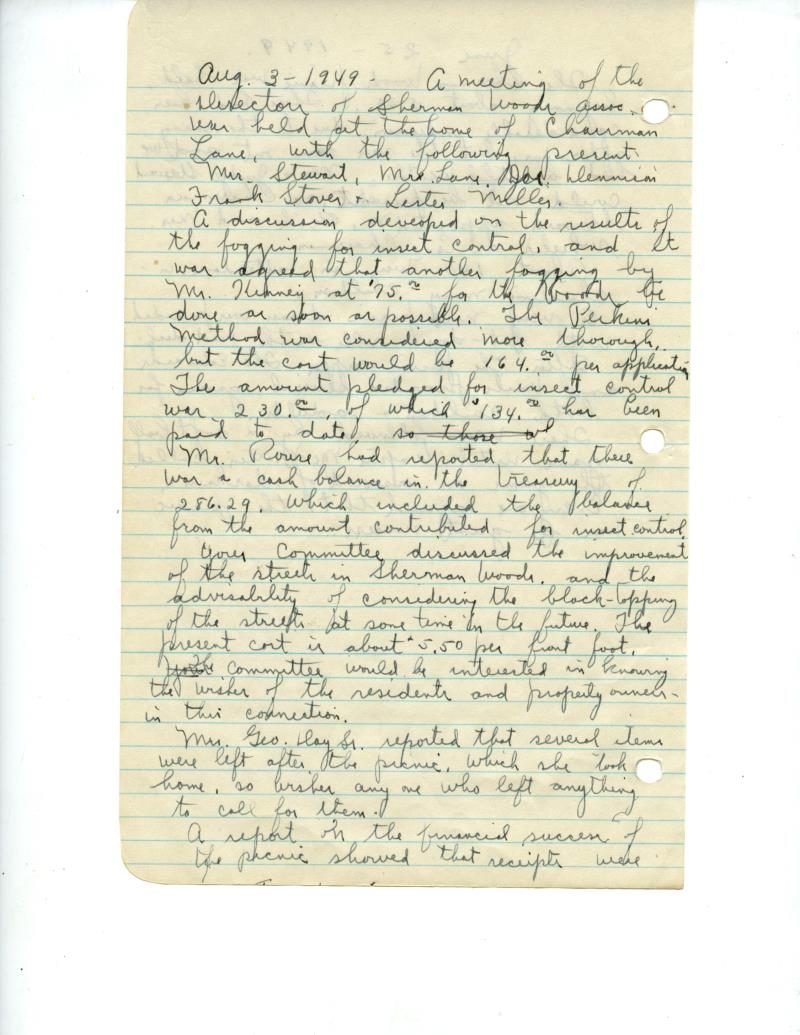 Aug. 3 - 1949 - A meeting of the
directors of Sherman Woods assoc.
was held at the home of Chairman
Lane, with the following present.
Mr. Stewart, Mrs Lane, Dennison
Frank Stover + Lester Miller.
A discussion deveoped on the results of
the fogging for insect control, and it
was agreed that another fogging by
Mr. Kenney at $75.00 for the Woods be
done as soon as possible. The Perkins
Method was considered more thorough,
but the cost would be 164.00 per application
The amount pledged for insect control
was 230.00, of which $134.00 has been
paid to date, so those
Mr. Rouse had reported that there
was a cash balance in the treasury of
286.29. Which included the balance
from the amount contributed for insect control.
Your Committee discussed the improvement
of the streets in Sherman Woods, and the
advisability of considering the black-topping
of the streets at some time in the future. The
present cost is about $5.50 per front foot.
The committee would be interested in knowing
the wishes of the residents and property owners -
in this connection.
Mrs. Geo. Hay Sr. reported that several items
were left after the picnic, which she took
home, so wishes any one who left anything
to call for them.
A report on the financial success of
the picnic showed that receipts were